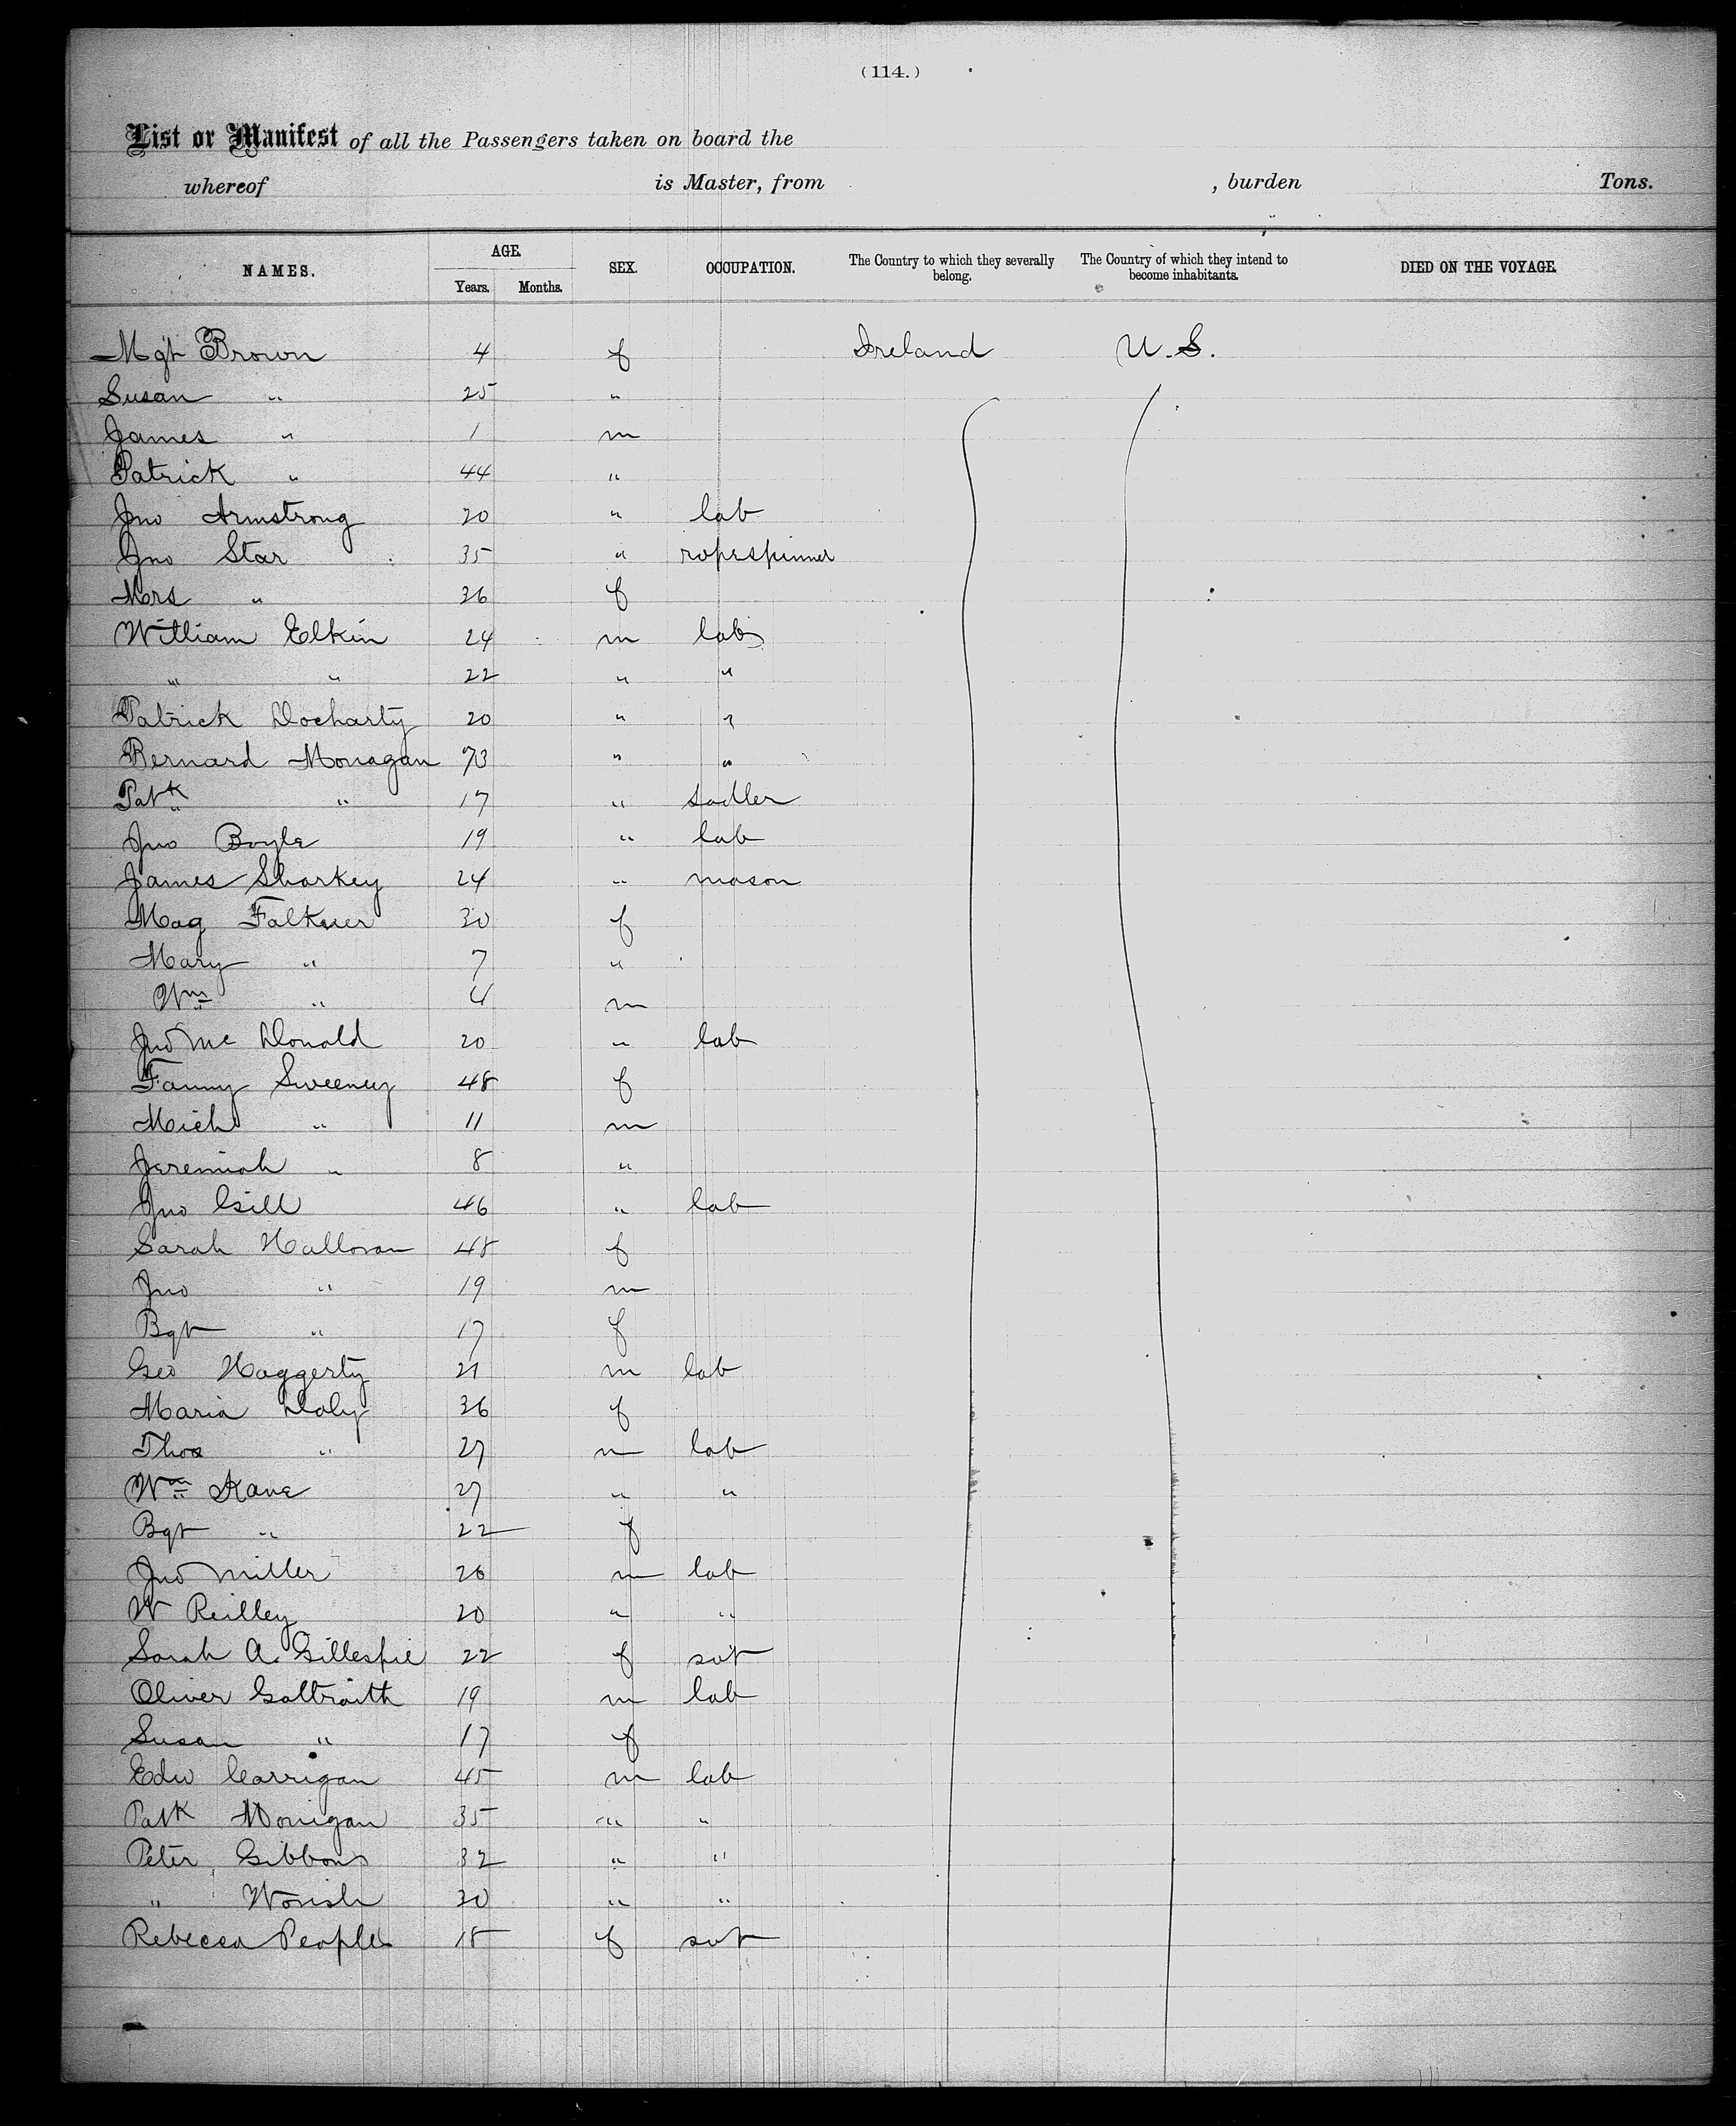 (114.)
List or Manifest of all the Passengers taken on board the
whereof is Master, from , burden Tons.
NAMES. AGE. SEX. OCCUPATION. The Country to which they severally belong. The Country of which they intend to become inhabitants. DIED ON THE VOYAGE.
Years. Months.
Mgt Brown 4 f Ireland U.S.
Susan " 25 "
James " 1 m
Patrick " 44 "
Jno Armstrong 20 " lab
Jno Star 35 " ropespinner
Mrs " 36 f
William Elkin 24 m lab
" " 22 " "
Patrick Docharty 20 " "
Bernard Monagan 73 " "
Patk " 17 " sadler
Jno Boyle 19 " lab
James Sharkey 24 " mason
Mag Falkner 30 f
Mary " 7 "
Wm " 4 m
Jno Mc Donald 20 " lab
Fanny Sweeney 48 f
Mich " 11 m
Jeremiah " 8 "
Jno Gill 46 " lab
Sarah Halloran 48 f
Jno " 19 m
Bgt " 17 f
Geo Haggerty 21 m lab
Maria Daly 36 f
Thos " 27 m lab
Wm Kane 27 " "
Bgt " 22 f
Jno Miller 26 m lab
W Reilley 20 " "
Sarah A. Gillespie 22 f
Oliver Galtraith 19 m lab
Susan " 17 f
Edw Carrigan 45 m lab
Patk Monigan 35 " "
Peter Gibbons 32 " "
" 30 " "
Rebecca Peoples 18 f